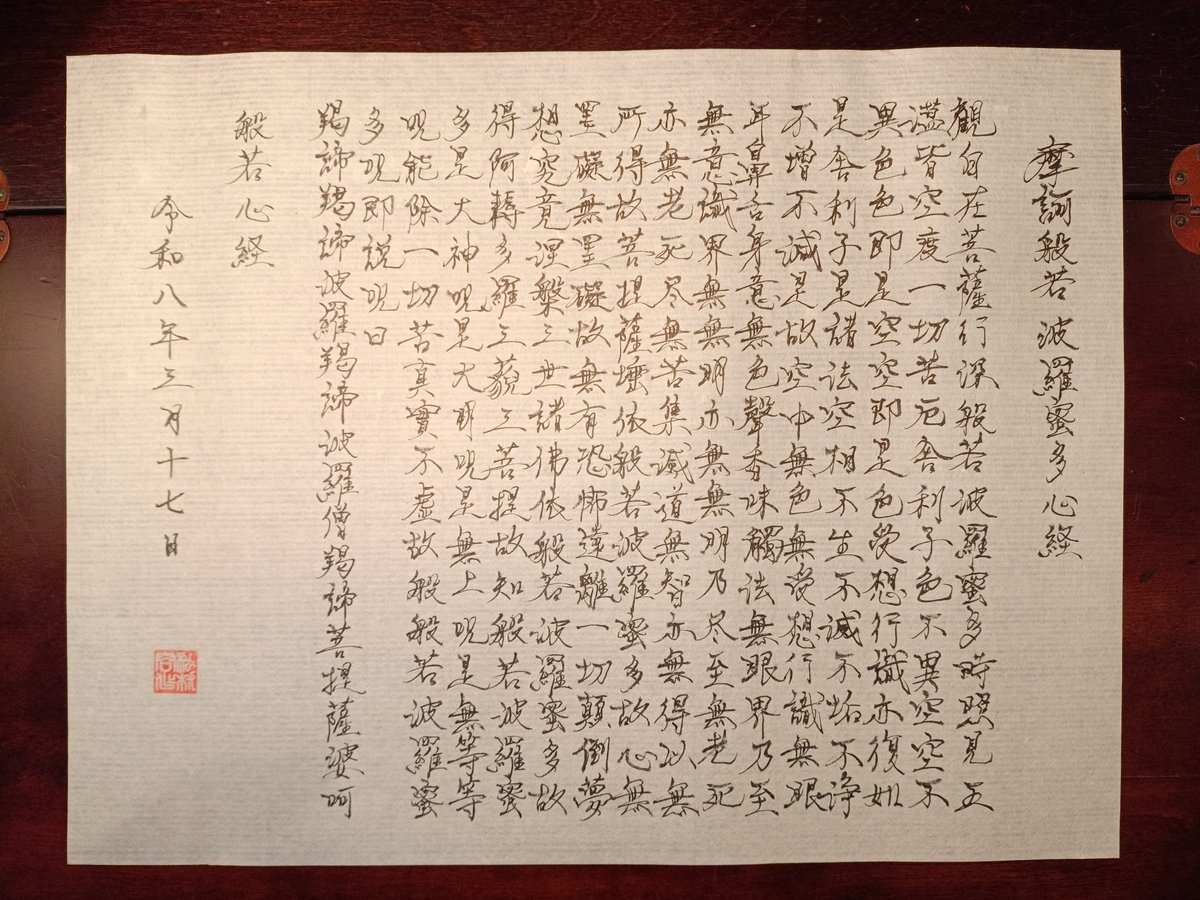 摩訶般若波羅蜜多心経
観自在菩薩行深般若波羅蜜多時照見五
蘊皆空度一切苦厄舎利子色不異空空不
異色色即是空空即是色受想行識亦復如
是舎利子是諸法空相不生不滅不垢不浄
不増不減是故空中無色無受想行識無眼
耳鼻舌身意無色聲香味觸法無眼界乃至
無意識界無無明亦無無明乃尽至無老死
亦無老死尽無苦集滅道無智亦無得以無
所得故菩提薩埵依般若波羅蜜多故心無
罣礙無罣礙故無有恐怖遠離一切顛倒夢
想究竟涅槃三世諸佛依般若波羅蜜多故
得阿耨多羅三藐三菩提故知般若波羅蜜
多是大神呪是大明呪是無上呪是無等等
呪能除一切苦真實不虚故般般若波羅蜜
多呪即説呪曰
羯諦羯諦波羅羯諦波羅僧羯諦菩提薩婆呵
般若心経
令和八年三月十七日